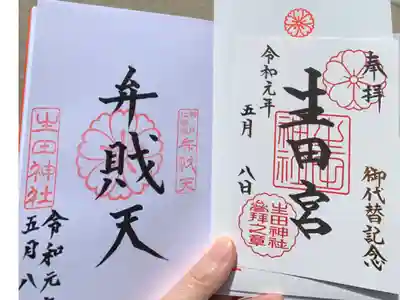 奉拝
生田宮
御代替記念
令和元年
五月八日
生田神社
参拝之章
弁財天
生田神社
令和元年
五月八